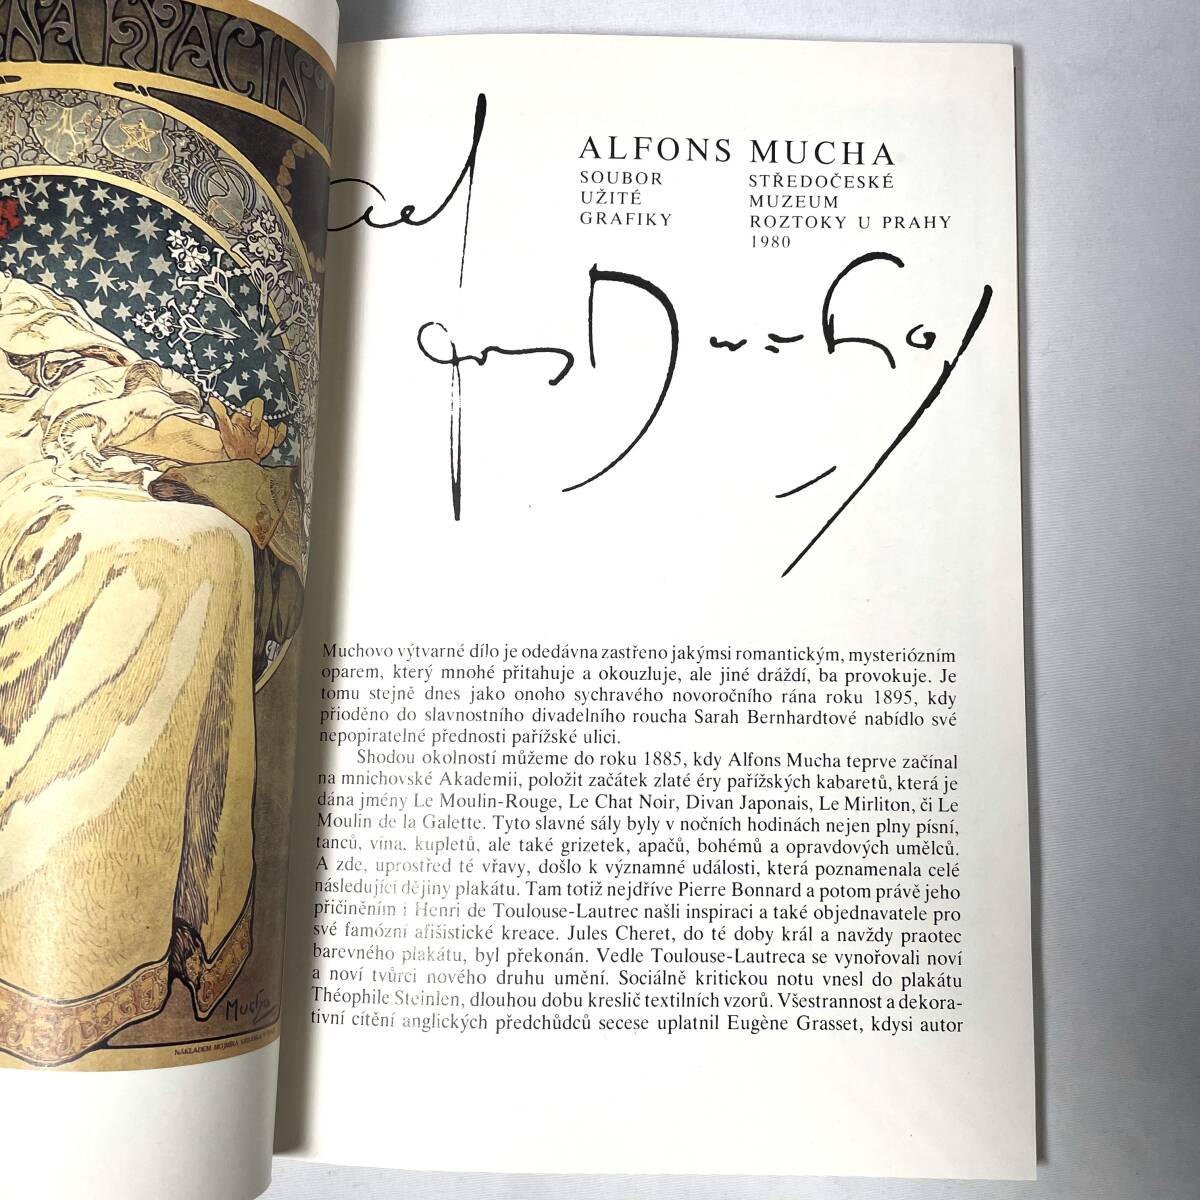 NA HYACIN
Mucha
ALFONS MUCHA
SOUBOR
UŽITÉ
GRAFIKY
STŘEDOČESKÉ
MUZEUM
ROZTOKY U PRAHY
1980
Muchovo výtvarné dílo je odedávna zastřeno jakýmsi romantickým, mysteriózním
oparem, který mnohé přitahuje a okouzluje, ale jiné dráždí, ba provokuje. Je
tomu stejně dnes jako onoho sychravého novoročního rána roku 1895, kdy
přioděno do slavnostního divadelního roucha Sarah Bernhardtové nabídlo své
nepopiratelné přednosti pařížské ulici.
Shodou okolností můžeme do roku 1885, kdy Alfons Mucha teprve začínal
na mnichovské Akademii, položit začátek zlaté éry pařížských kabaretů, která je
dána jmény Le Moulin-Rouge, Le Chat Noir, Divan Japonais, Le Mirliton, či Le
Moulin de la Galette. Tyto slavné sály byly v nočních hodinách nejen plny písní,
tanců, vína, kupletů, ale také grizetek, apačů, bohémů a opravdových umělců.
A zde, uprostřed té vřavy, došlo k významné události, která poznamenala celé
následující dějiny plakátu. Tam totiž nejdříve Pierre Bonnard a potom právě jeho
přičiněním i Henri de Toulouse-Lautrec našli inspiraci a také objednavatele pro
své famózní afišistické kreace. Jules Cheret, do té doby král a navždy praotec
barevného plakátu, byl překonán. Vedle Toulouse-Lautreca se vynořovali noví
a noví tvůrci nového druhu umění. Sociálně kritickou notu vnesl do plakátu
Théophile Steinlen, dlouhou dobu kreslič textilních vzorů. Všestrannost a dekora-
tivní cítění anglických předchůdců secese uplatnil Eugène Grasset, kdysi autor